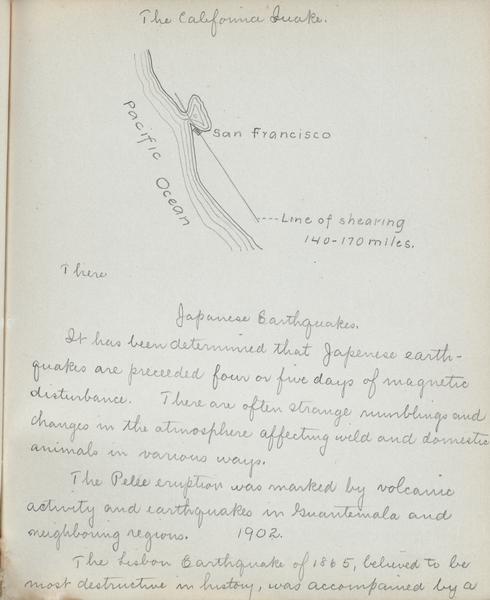 The California Quake.
Pacific Ocean
San Francisco
Line of shearing
140-170 miles.
There
Japanese Earthquakes.
It has been determined that Japenese earth-
quakes are preceeded four or five days of magnetic
disturbance. There are often strange rumblings and
changes in the atmosphere affecting wild and domestic
animals in various ways.
The Pelée eruption was marked by volcanic
activity and earthquakes in Guartemala and
neighboring regions. 1902.
The Lisbon Earthquake of 1865, believed to be
most destructive in history, was accompained by a